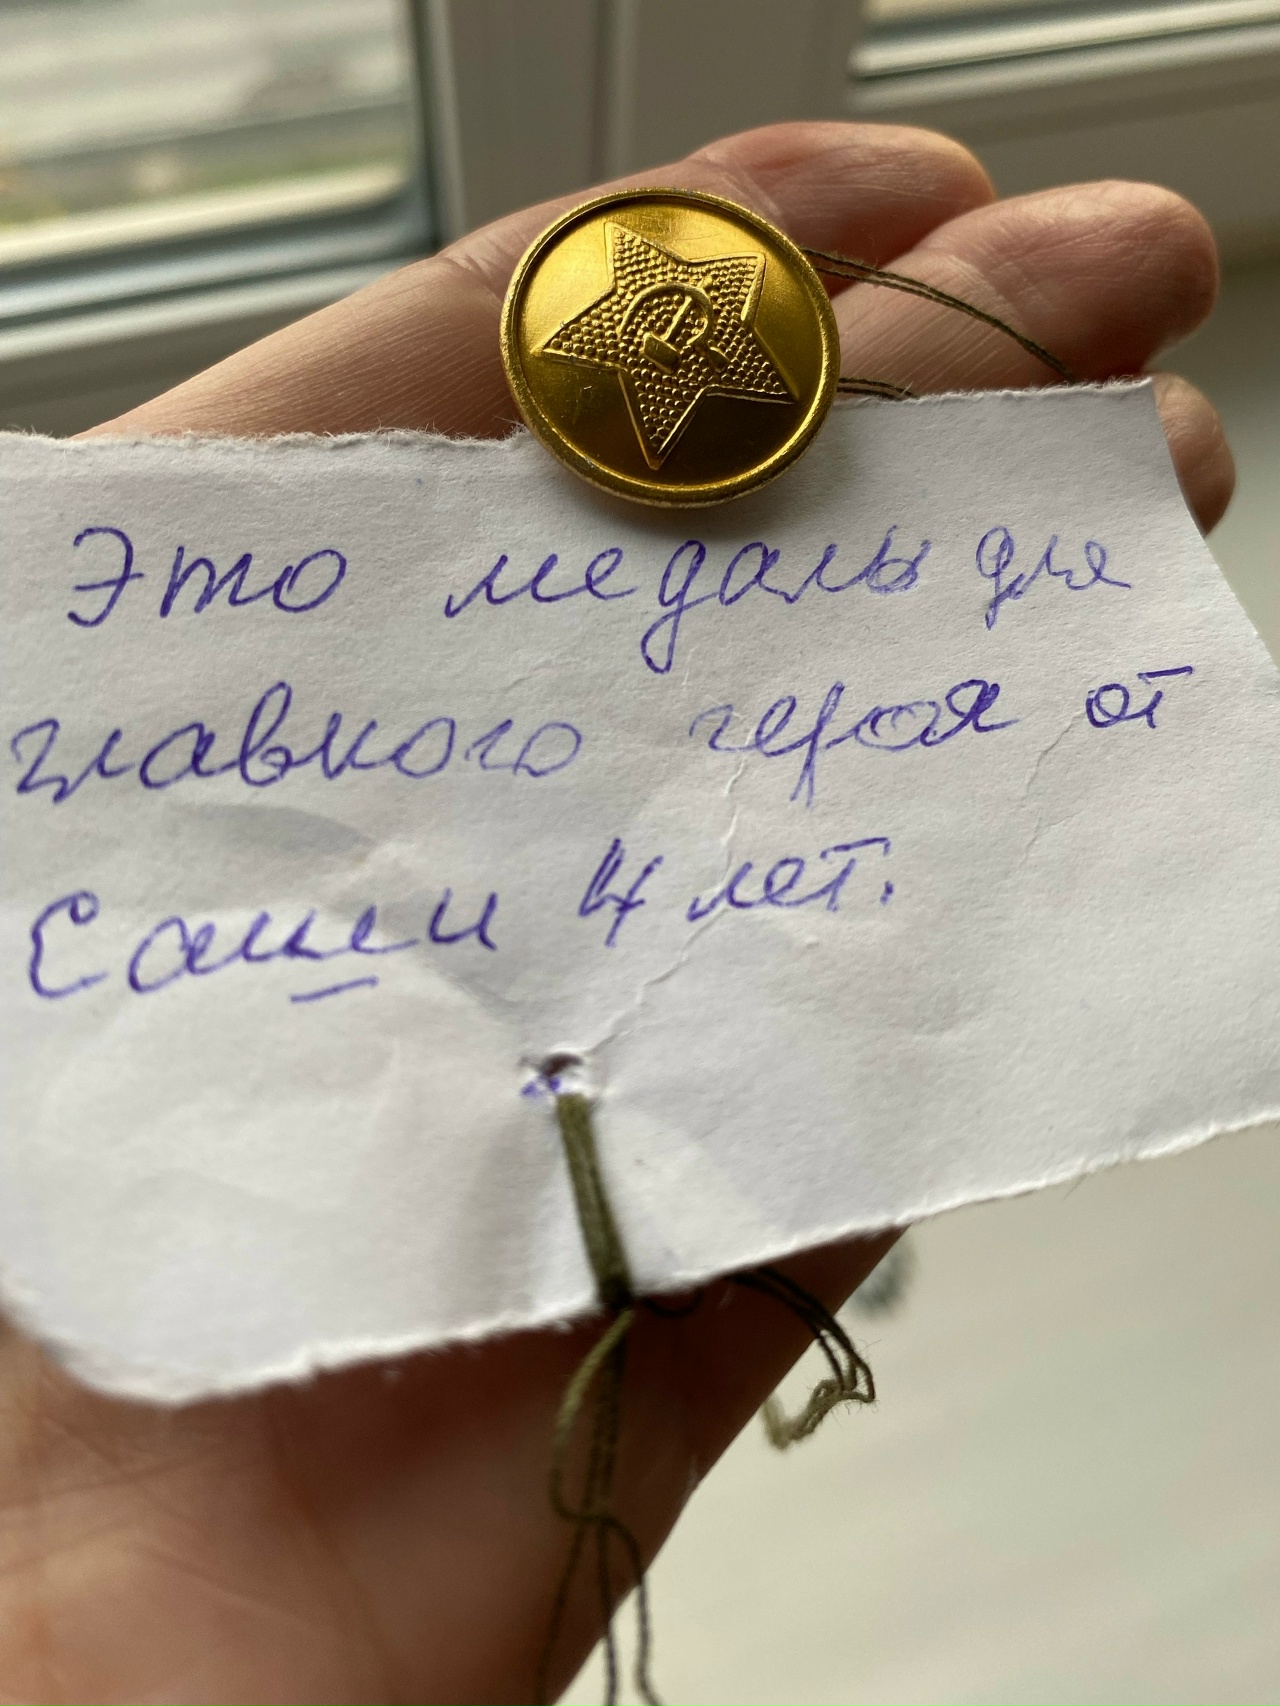 Это медаль для
главного героя от
Саши 4 лет.